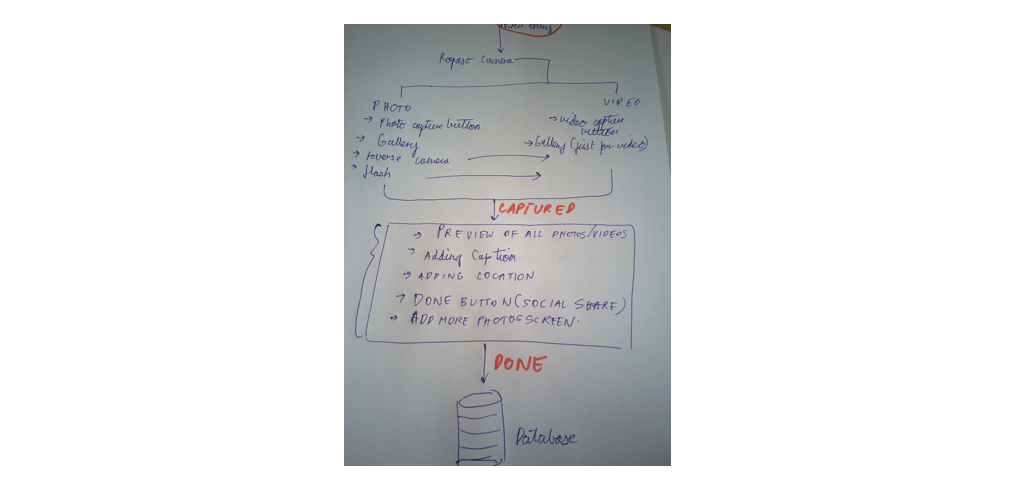 Ropaso Camera
PHOTO
→ Photo capture button
→ Gallery
→ reverse camera
→ flash
VIDEO
→ video capture
button
→ Gallery (just for video)
CAPTURED
→ PREVIEW OF ALL PHOTOS/VIDEOS
→ Adding Caption
→ ADDING LOCATION
→ DONE BUTTON (SOCIAL SHARE)
→ ADD MORE PHOTOS SCREEN.
DONE
Database